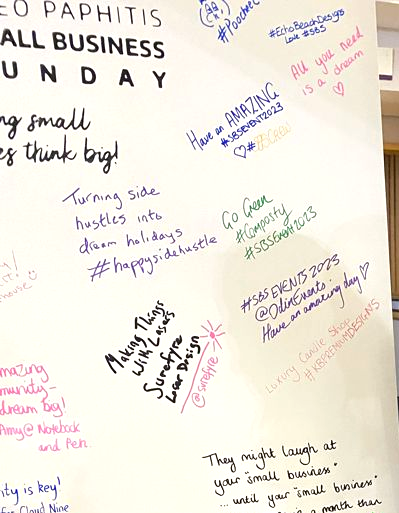 EO PAPHITIS
ALL BUSINESS
UNDAY
ng small
es think big!
#Poochie
#EchoBeachDesigns
Love #SBS
All you need
is a dream
Have an AMAZING
#SBSEVENT2023
#SBSCREW
Turning side
hustles into
dream holidays
#happysidehustle
Go Green
#Composty
#SBSEvent2023
#SBS EVENTS 2023
@OdinEvents.
Have an amazing day
Making Things
With Lasers
Surefyre
Laser Design
@surefyre
Luxury Candle Shop
#KBPREMIUMDESIGNS
house"
mazing
munity-
dream big!
Amy@ Notebook
and Pen
ity is key'
for Cloud Nine
They might laugh at
your "small business"
... until your "small business"
in a month than